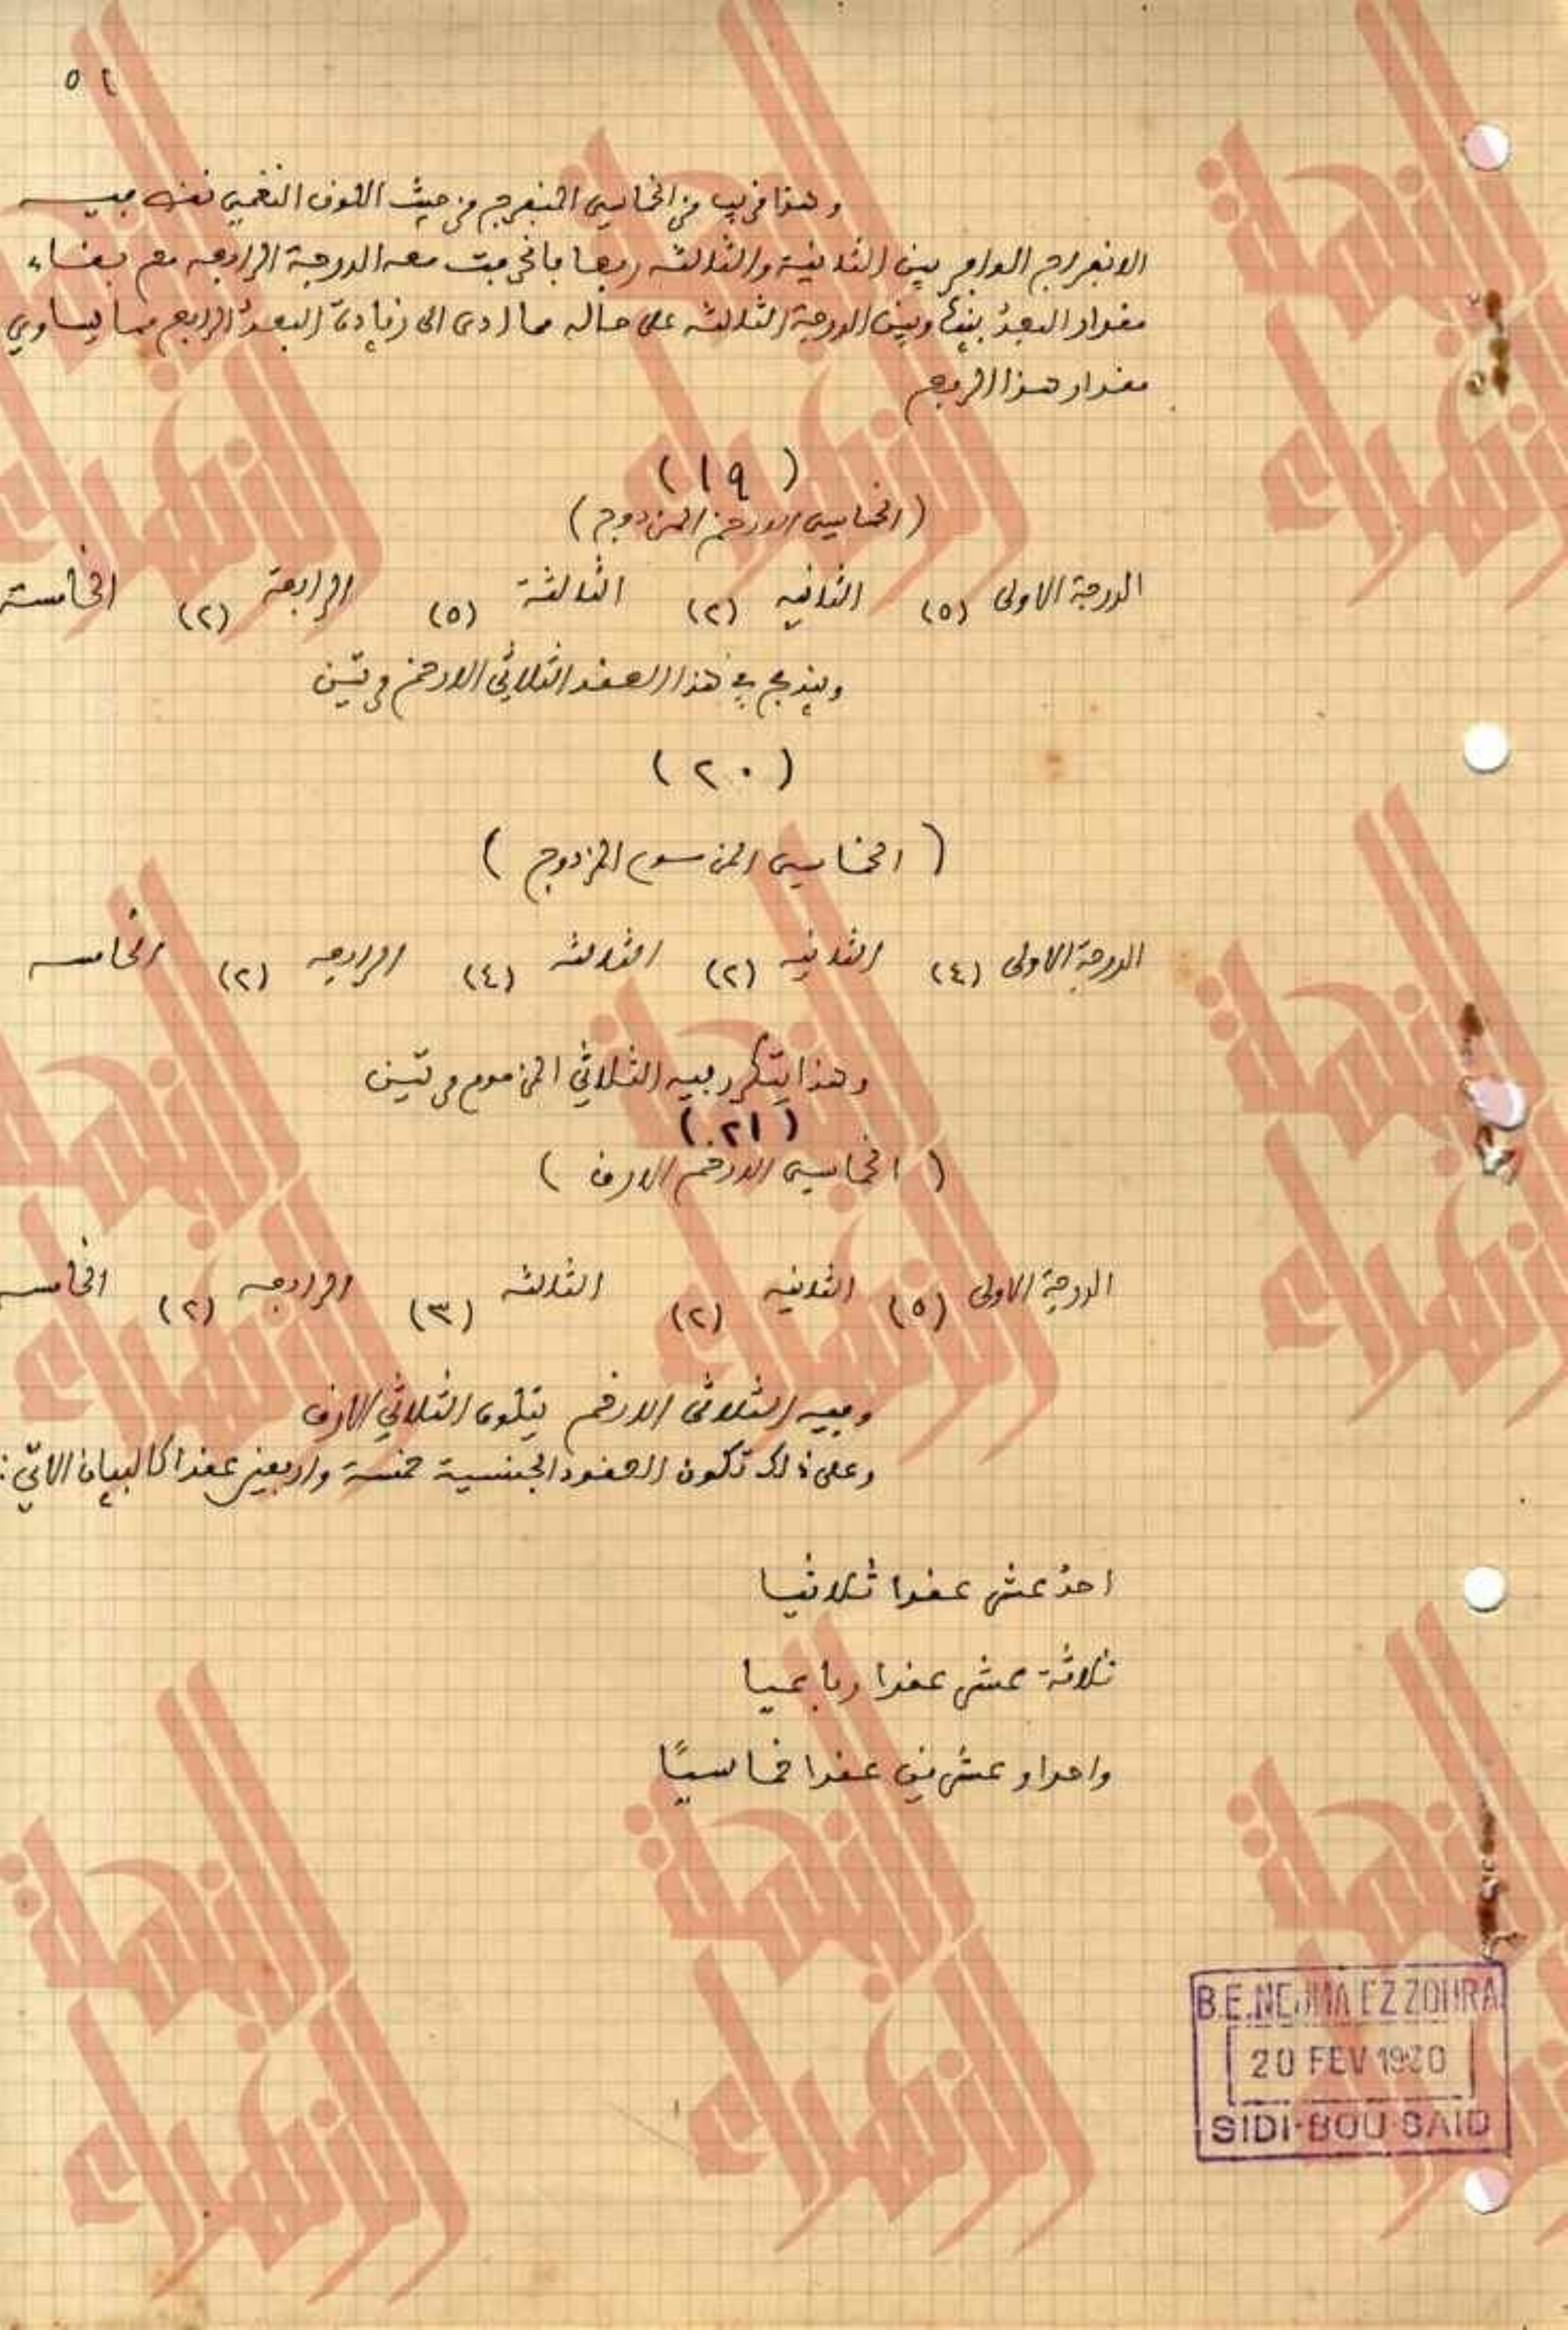 ٥٢
وهذا قريب من الخماسي المنفرج من حيث اللون النغمي نفسه فيه
الانفراج الواقع بين الثانية والثالثة ربعا فانحرفت معه الدرجة الرابعة مع بقاء
مقدار البعد بينها وبين الدرجة الثالثة على حاله مما ادى الى زيادة البعد الرابع مما يساوي
مقدار هذا الربع
(١٩)
(الخماسي الارخم المزدوج)
الدرجة الاولى (٥) الثانيه (٢) الثالثة (٥) الرابعة (٢) الخامسة
ويندمج في هذا العقد الثلاثي الارخم مرتين
(٢٠)
(الخماسي المزموم المزدوج)
الدرجة الاولى (٤) الثانيه (٢) الثالثه (٤) الرابعه (٢) الخامسه
وهذا يتكرر فيه الثلاثي المزموم مرتين
(٢١)
(الخماسي الارخم الارق)
الدرجة الاولى (٥) الثانيه (٢) الثالثه (٣) الرابعه (٢) الخامسه
وفيه الثلاثي الارخم يتلوه الثلاثي الارق
وعلى ذلك تكون العقود الجنسية خمسة واربعين عقدا كالبيان الاتي:
احد عشر عقدا ثلاثيا
ثلاثة عشر عقدا رباعيا
واحدا وعشرين عقدا خماسيًا
B.E.NEJMA EZZOHRA
20 FEV 19
SIDI-BOU-SAID
النجمة الزهراء